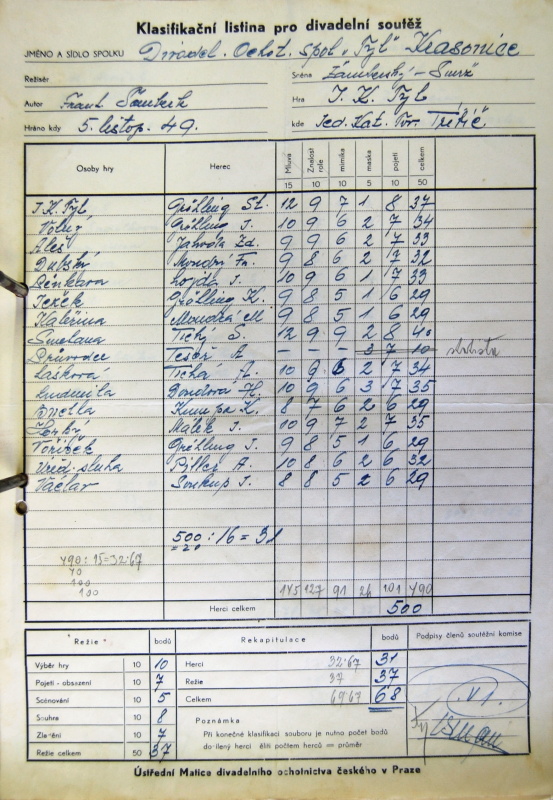 Klasifikační listina pro divadelní soutěž
JMÉNO A SÍDLO SPOLKU Divadel. Ochot. spol „Tyl“ Krasonice
Režisér
Scéna Žamberský - Smrž
Autor Frant.
Hra J. K. Tyl
Hráno kdy 5. listop. 49.
kde Jed. Kat. Tov. Třešť
Osoby hry Herec Mluva 15 Znalost role 10 mimika 10 maska 5 pojetí 10 celkem 50
J. K. Tyl Gröhling St. 12 9 7 1 8 37
Volný Gröhling J. 10 9 6 2 7 34
Aleš Zd. 9 9 6 2 7 33
Fr. 9 8 6 2 7 32
Pěnkava Lojda J. 10 9 6 1 7 33
Ježek Gröhling K. 9 8 5 1 6 29
Kateřina Moudrá M. 9 8 5 1 6 29
Smetana Tichý S. 12 9 9 2 8 40
Průvodce Tesař A. — — — 3 7 10
Lašková Tichá A. 10 9 6 2 7 34
Ludmila H. 10 9 6 3 7 35
K. 8 7 6 2 6 29
Málek J. 10 9 7 2 7 35
Voříšek Gröhling J. 9 8 5 1 6 29
Úřed. sluha A. 10 8 6 2 6 32
Václav Soukup J. 8 8 5 2 6 29
500 : 16 = 31
= 20
490 : 15 = 32·67
40
100
100
145 127 91 26 101 490
Herci celkem 500
Režie bodů
Výběr hry 10 10
Pojetí - obsazení 10 7
Scénování 10 5
Souhra 10 8
Zladění 10 7
Režie celkem 50 37
Rekapitulace bodů
Herci 32·67 31
Režie 37 37
Celkem 69·67 68
Poznámka
Při konečné klasifikaci souboru je nutno počet bodů
docílený herci děliti počtem herců = průměr
Podpisy členů soutěžní komise
VI.
Ústřední Matice divadelního ochotnictva českého v Praze